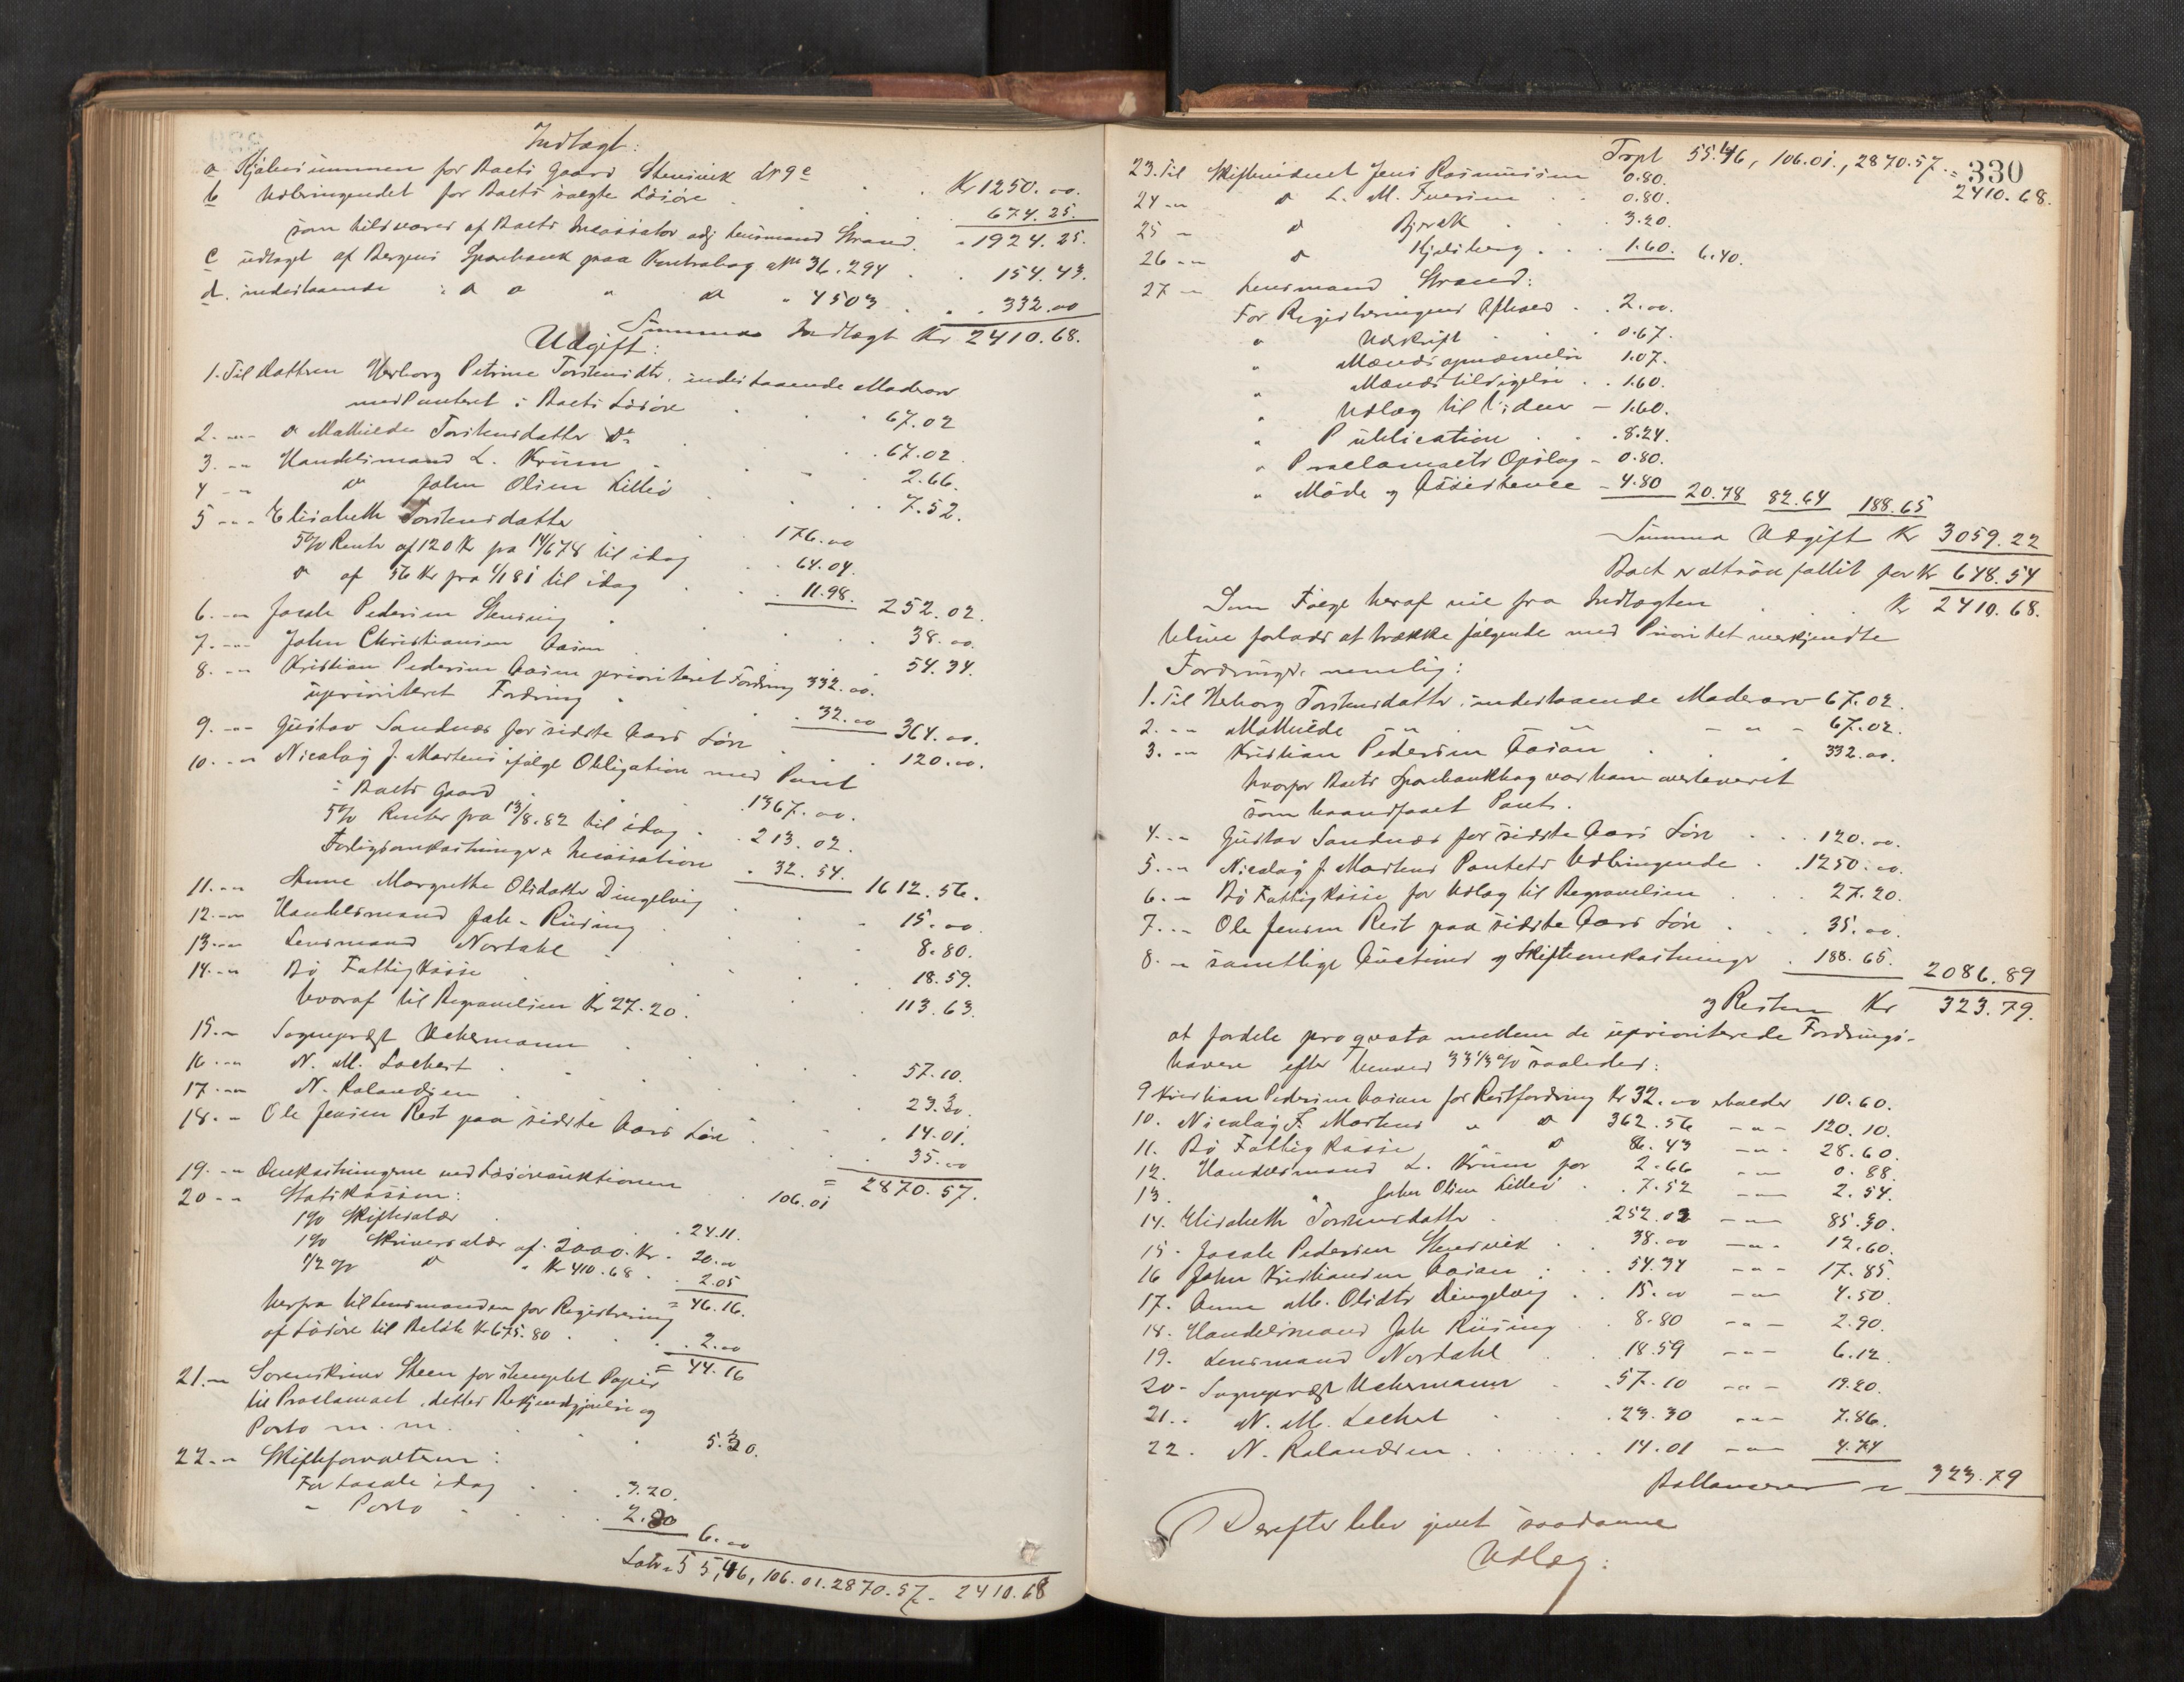 Indtægt:
a Kjøbesummen for Boets Gaard Stensvik No 9c . . Kr 1250.00.
b Udbringendet for Boets solgte Løsøre . . . 674.25.
som tilsvares af Boets Incassator adj. Lensmand Strand. " 1924.25.
c udtaget af Bergens Sparebank paa Kontrabog No 36.294 . . 154.43.
d. indestaaende i do do " do " 4503 . . 332.00
Summa Indtægt Kr 2410.68.
Udgift:
1. Til Datteren Herborg Petrine Torstensdtr. indestaaende Madrearv
med Panteret i Boets Løsøre . . . 67.02
2. -"- do Mathilde Torstensdatter do . . 67.02
3. -"- Handelsmand L. Krüm . . . 2.66.
4 -"- do John Olsen Lillebø . . 7.52.
5 -"- Elisabeth Torstensdatter . . 176.00
5% Rente af 120 Kr fra 14/6 78 til idag . . 64.04.
do af 56 Kr fra 1/1 81 til idag . . 11.98. 252.02.
6. -"- Jacob Pedersen Stensvig . . . 38.00.
7. -"- John Christiansen Aasen . . . 54.34.
8. -"- Kristian Pedersen Aasen prioriteret Fordring 332.00.
uprioriteret Fordring . . 32.00 364.00.
9. -"- Gustav Sandnes for sidste Aars Løn . . 120.00.
10. -"- Nicolay J. Martens ifølge Obligation med Pant
i Boets Gaard . . 1367.00.
5% Renter fra 13/8.82 til idag . . 213.02.
Forligsomkostninger & Incassation . 32.54. 1612.56.
11. -"- Anne Margrethe Olsdatter Dingelvig . . 15.00
12. -"- Handelsmand Jak. Rüsing . . . 8.80.
13. -"- Lensmand Nordahl . . . 18.59.
14. -"- Bø Fattigkasse . . . 113.63.
hvoraf til Begravelsen Kr 27.20.
15. -"- Sogneprest Uchermann . . 57.10.
16. -"- N. M. Lochert . . . 23.30.
17. -"- N. Rolandsen . . . 14.01.
18. -"- Ole Jensen Rest paa sidste Aars Løn . . 35.00
= 2870.57.
19. -"- Omkostningerne ved Løsøreauktionen . . 106.01
20 -"- Statskassen:
1% Skiftesalær . . 24.11.
1% Skriversalær af 2000. Kr . 20.00
1/2 % do " Kr 410.68 . . 2.05
= 46.16.
herfra til Lensmanden for Registrering
af Løsøre til Beløb Kr 675.80 . . 2.00
= 44.16
21. -"- Sorenskriver Steen for stemplet Papir
til Proclamaet, dettes Bekjendtgjørelse og
Porto m. m. . . . 5.30.
22. -"- Skifteforvalteren:
For Locale idag . . 3.20.
" Porto . . . 2.80
6.00
Latus 55,46, 106.01. 2870.57. = 2410.68
330
Trpt 55.46, 106.01., 2870.57. = 2410.68.
23. Til Skiftevidnet Jens Rasmussen 0.80.
24 -"- do L. M. Iversen . . 0.80.
25 -"- do Bjørk . . 3.20.
26 -"- do Kjelsberg . . . 1.60. 6.40.
27 -"- Lensmand Strand:
For Registreringens Afhold . . 2.00.
" Udskrift . . 0.67.
" Mænds opnævnelse 1.07.
" Mænds tilsigelse . . 1.60.
" Udlæg til Vidner - 1.60.
" Publication . . 8.24.
" Proclamaets Opslag - 0.80.
" Møde og Assistence - 4.80 20.78 82.64 188.65
Summa Udgift Kr 3059.22
Boet er altsaa fallit for Kr 648.54
Som Følge heraf vil fra Indtægten . . . Kr 2410.68.
blive forlods at trække følgende med Prioritet anerkjendte
Fordringer, nemlig:
1. Til Herborg Torstensdatter, indestaaende Madrearv 67.02.
2. -"- Mathilde -"- - " - 67.02.
3. -"- Kristian Pedersen Aasen . . . 332.00.
hvorfor Boets Sparebankbog var ham overleveret
som haandfaaet Pant.
4. -"- Gustav Sandnes for sidste Aars Løn . . . 120.00.
5. -"- Nicolay J. Martens Pantets Udbringende . . 1250.00.
6. -"- Bø Fattigkasse for Udlæg til Begravelsen . . . 27.20.
7. -"- Ole Jensen Rest paa sidste Aars Løn . . . 35.00.
8. -"- samtlige Auctions og Skifteomkostninger . 188.65. 2086.89
og Resten Kr 323.79.
at fordele pro qvota mellem de uprioriterede Fordrings-
havere efter henved 33 1/3 % saaledes:
9 Kristian Pedersen Aasen for Restfordring Kr 32.00 erholder 10.60.
10. Nicolay J. Martens " do 362.56 -"- 120.10.
11. Bø Fattigkasse " do 86.43 -"- 28.60.
12. Handelsmand L. Krüm for 2.66 -"- 0.88.
13. " John Olsen Lillebø . . 7.52 -"- 2.54.
14. Elisabeth Torstensdatter . 252.02 -"- 85.30.
15. Jacob Pedersen Stensvik . . 38.00 -"- 12.60.
16 John Kristiansen Aasen . . . 54.34 -"- 17.85.
17. Anne M. Olsdtr Dingelvig . . 15.00 -"- 4.50.
18. Handelsmand Jak Rüsing . . 8.80 -"- 2.90.
19. Lensmand Nordahl . . 18.59 -"- 6.12.
20. Sogneprest Uchermann . . 57.10 -"- 19.20.
21. N. M. Lochert . . 23.30 -"- 7.86.
22. N. Rolandsen . . . 14.01 -"- 4.74
Ballancerer = 323.79
Derefter blev gjort saadanne
Udlæg: